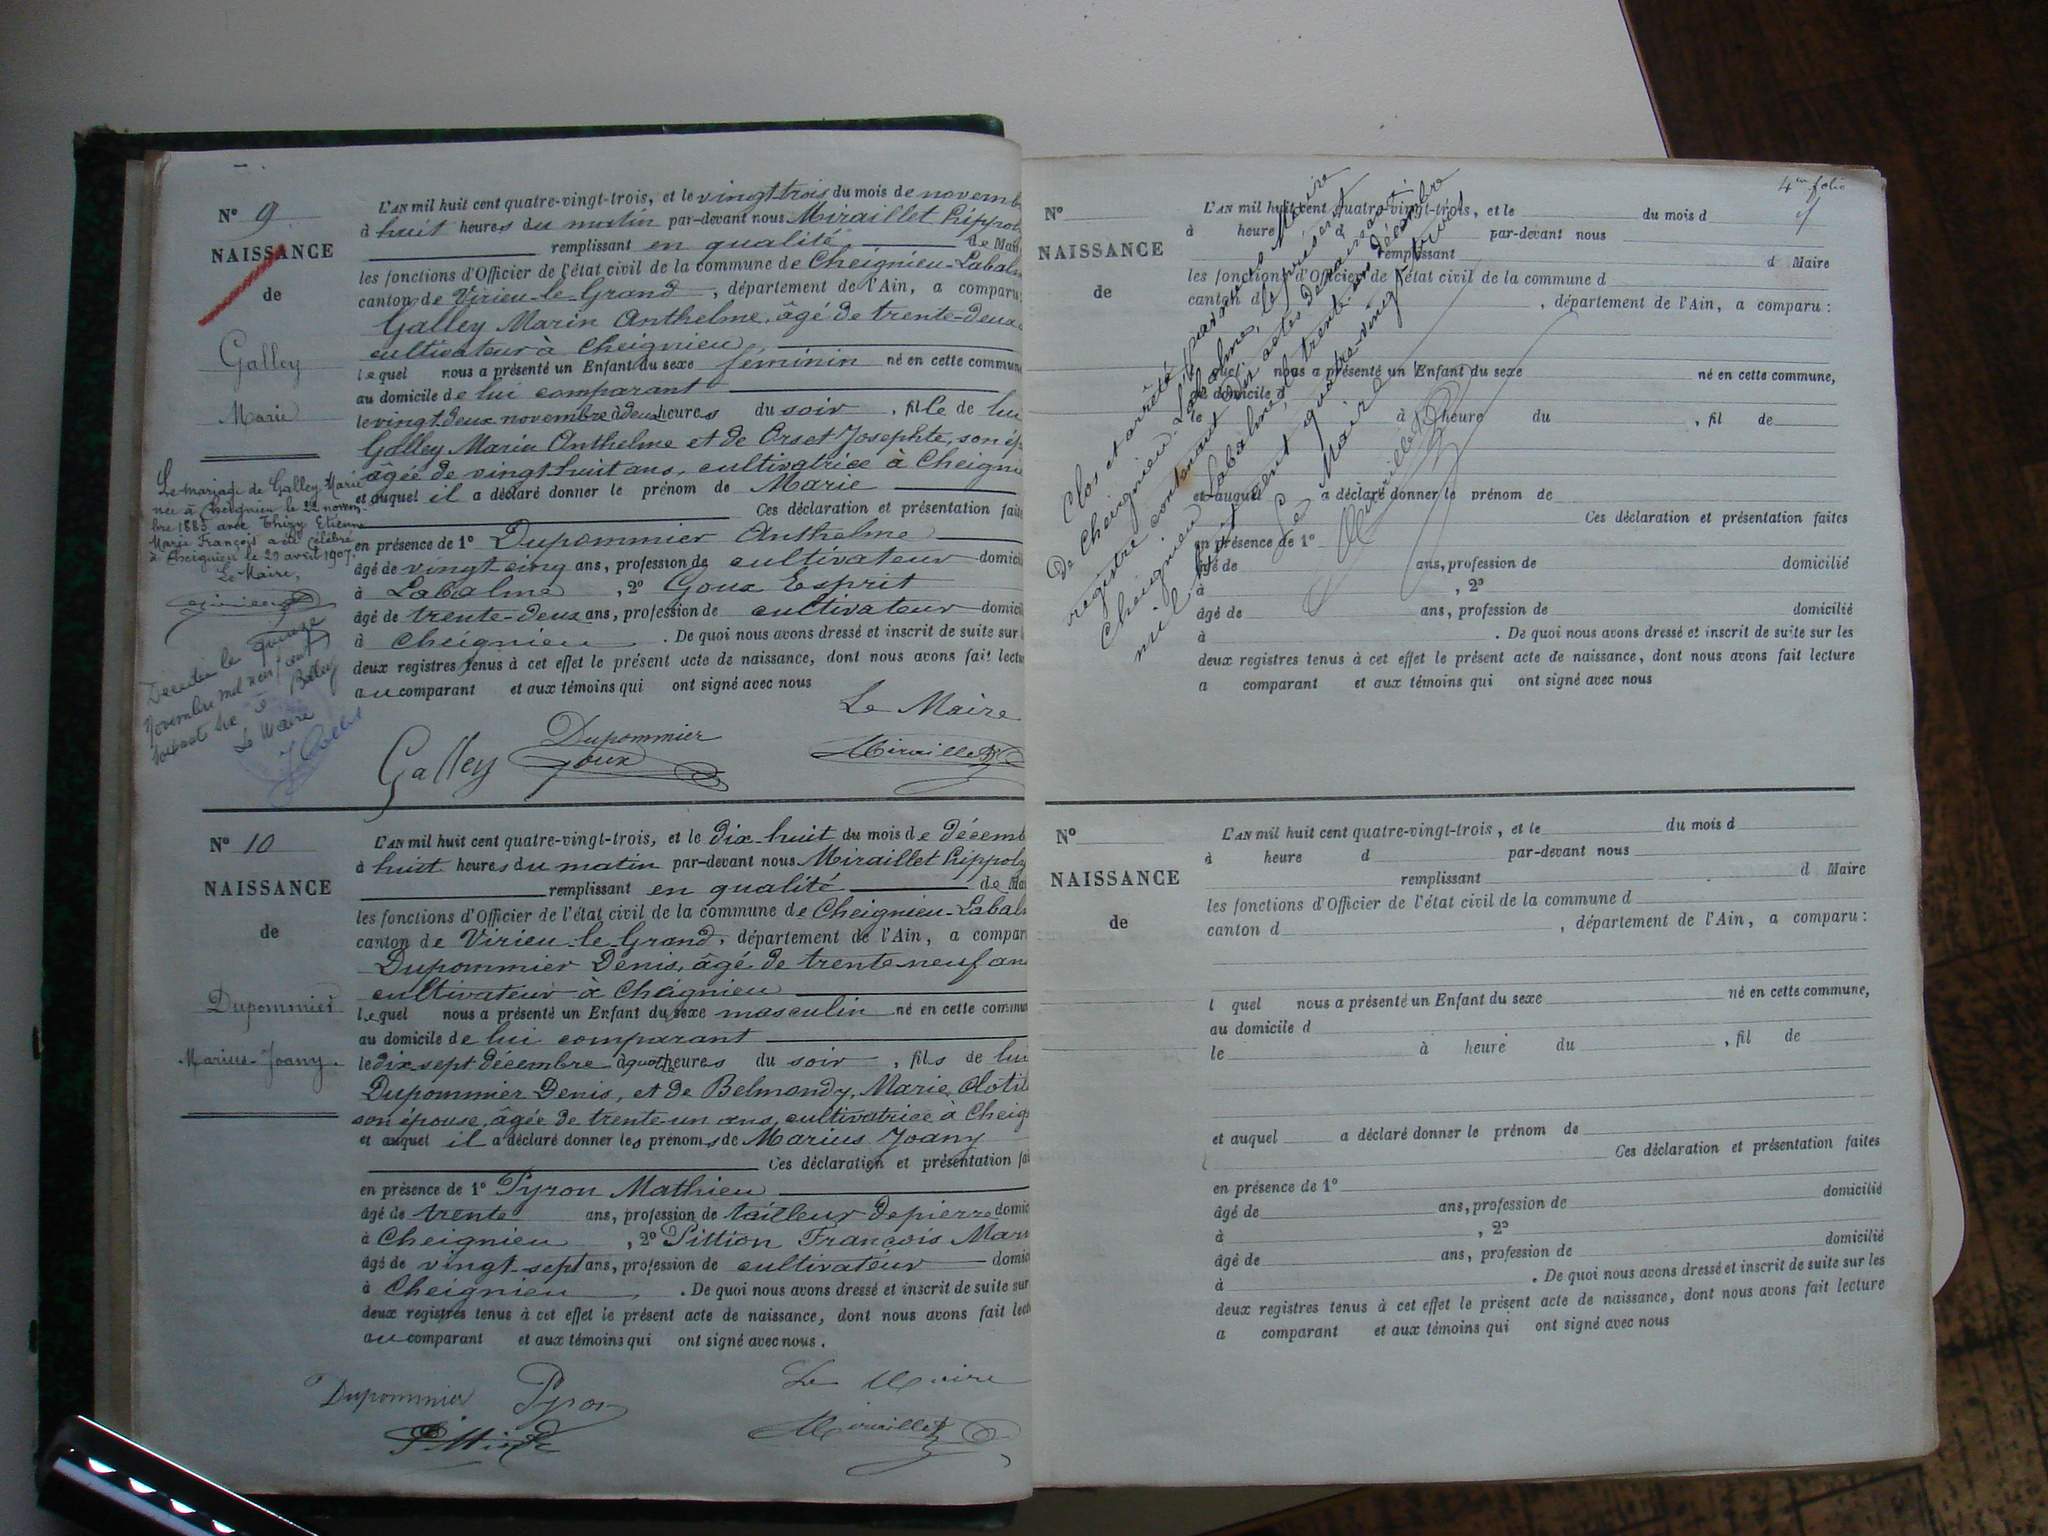 N° 9
NAISSANCE
de
Galley
Marie
Le mariage de Galley Marie
née à Cheignieu le 22 novem-
bre 1883 avec Thizy Etienne
Marie François a été célébré
à Cheignieu le 29 avril 1907.
Le Maire,
Décédée le quinze
Novembre mil neuf cent
soixante à Belley
Le Maire
L'AN mil huit cent quatre-vingt-trois, et le vingt trois du mois de novemb
à huit heures du matin par-devant nous Miraillet Hippol
remplissant en qualité de Mai
les fonctions d'Officier de l'état civil de la commune de Cheignieu-Labalm
canton de Virieu-le-Grand, département de l'Ain, a comparu:
Galley Marin Anthelme, âgé de trente-deux
cultivateur à Cheignieu,
lequel nous a présenté un Enfant du sexe féminin né en cette commune
au domicile de lui comparant
le vingt deux novembre à deux heures du soir, fille de lui
Galley Marin Anthelme et de Orset Josephte, son ép
âgée de vingt huit ans, cultivatrice à Cheigni
et auquel il a déclaré donner le prénom de Marie
Ces déclaration et présentation faites
en présence de 1° Dupommier Anthelme
âgé de vingt cinq ans, profession de cultivateur domici
à Labalme, 2° Goux Esprit
âgé de trente-deux ans, profession de cultivateur domici
à Cheignieu. De quoi nous avons dressé et inscrit de suite sur l
deux registres tenus à cet effet le présent acte de naissance, dont nous avons fait lectu
au comparant et aux témoins qui ont signé avec nous
Le Maire
Galley Dupommier Miraillet
Goux
N° 10
NAISSANCE
de
Dupommier
Marius-Joany.
L'AN mil huit cent quatre-vingt-trois, et le dix-huit du mois de décemb
à huit heures du matin par-devant nous Miraillet Hippoly
remplissant en qualité de Mai
les fonctions d'Officier de l'état civil de la commune de Cheignieu-Labalm
canton de Virieu-le-Grand, département de l'Ain, a compar
Dupommier Denis, âgé de trente neuf ans
cultivateur à Cheignieu
lequel nous a présenté un Enfant du sexe masculin né en cette commu
au domicile de lui comparant
le dix sept décembre à quatre heures du soir, fils de lui
Dupommier Denis, et de Belmondy, Marie, Clotil
son épouse, âgée de trente un ans, cultivatrice à Cheig
et auquel il a déclaré donner les prénoms de Marius Joany
Ces déclaration et présentation fai
en présence de 1° Pyron Mathieu
âgé de trente ans, profession de tailleur de pierre domic
à Cheignieu, 2° Pittion François Mari
âgé de vingt-sept ans, profession de cultivateur domic
à Cheignieu. De quoi nous avons dressé et inscrit de suite sur
deux registres tenus à cet effet le présent acte de naissance, dont nous avons fait lect
au comparant et aux témoins qui ont signé avec nous.
Le Maire
Dupommier Pyron Miraillet
Pittion
4me folio
N°
NAISSANCE
de
L'AN mil huit cent quatre-vingt-trois, et le du mois d
à heure d par-devant nous
remplissant d Maire
les fonctions d'Officier de l'état civil de la commune d
canton d , département de l'Ain, a comparu :
l quel nous a présenté un Enfant du sexe né en cette commune,
au domicile d
le à heure du , fil de
et auquel a déclaré donner le prénom de
Ces déclaration et présentation faites
en présence de 1°
âgé de ans, profession de domicilié
à , 2°
âgé de ans, profession de domicilié
à . De quoi nous avons dressé et inscrit de suite sur les
deux registres tenus à cet effet le présent acte de naissance, dont nous avons fait lecture
a comparant et aux témoins qui ont signé avec nous
Clos et arrêté par nous Maire
de Cheignieu-Labalme, le présent
registre contenant dix actes de naissance
Cheignieu Labalme, le trente-un décembre
mil huit cent quatre-vingt-trois
Le Maire
Miraillet
N°
NAISSANCE
de
L'AN mil huit cent quatre-vingt-trois, et le du mois d
à heure d par-devant nous
remplissant d Maire
les fonctions d'Officier de l'état civil de la commune d
canton d , département de l'Ain, a comparu :
l quel nous a présenté un Enfant du sexe né en cette commune,
au domicile d
le à heure du , fil de
et auquel a déclaré donner le prénom de
Ces déclaration et présentation faites
en présence de 1°
âgé de ans, profession de domicilié
à , 2°
âgé de ans, profession de domicilié
à . De quoi nous avons dressé et inscrit de suite sur les
deux registres tenus à cet effet le présent acte de naissance, dont nous avons fait lecture
a comparant et aux témoins qui ont signé avec nous